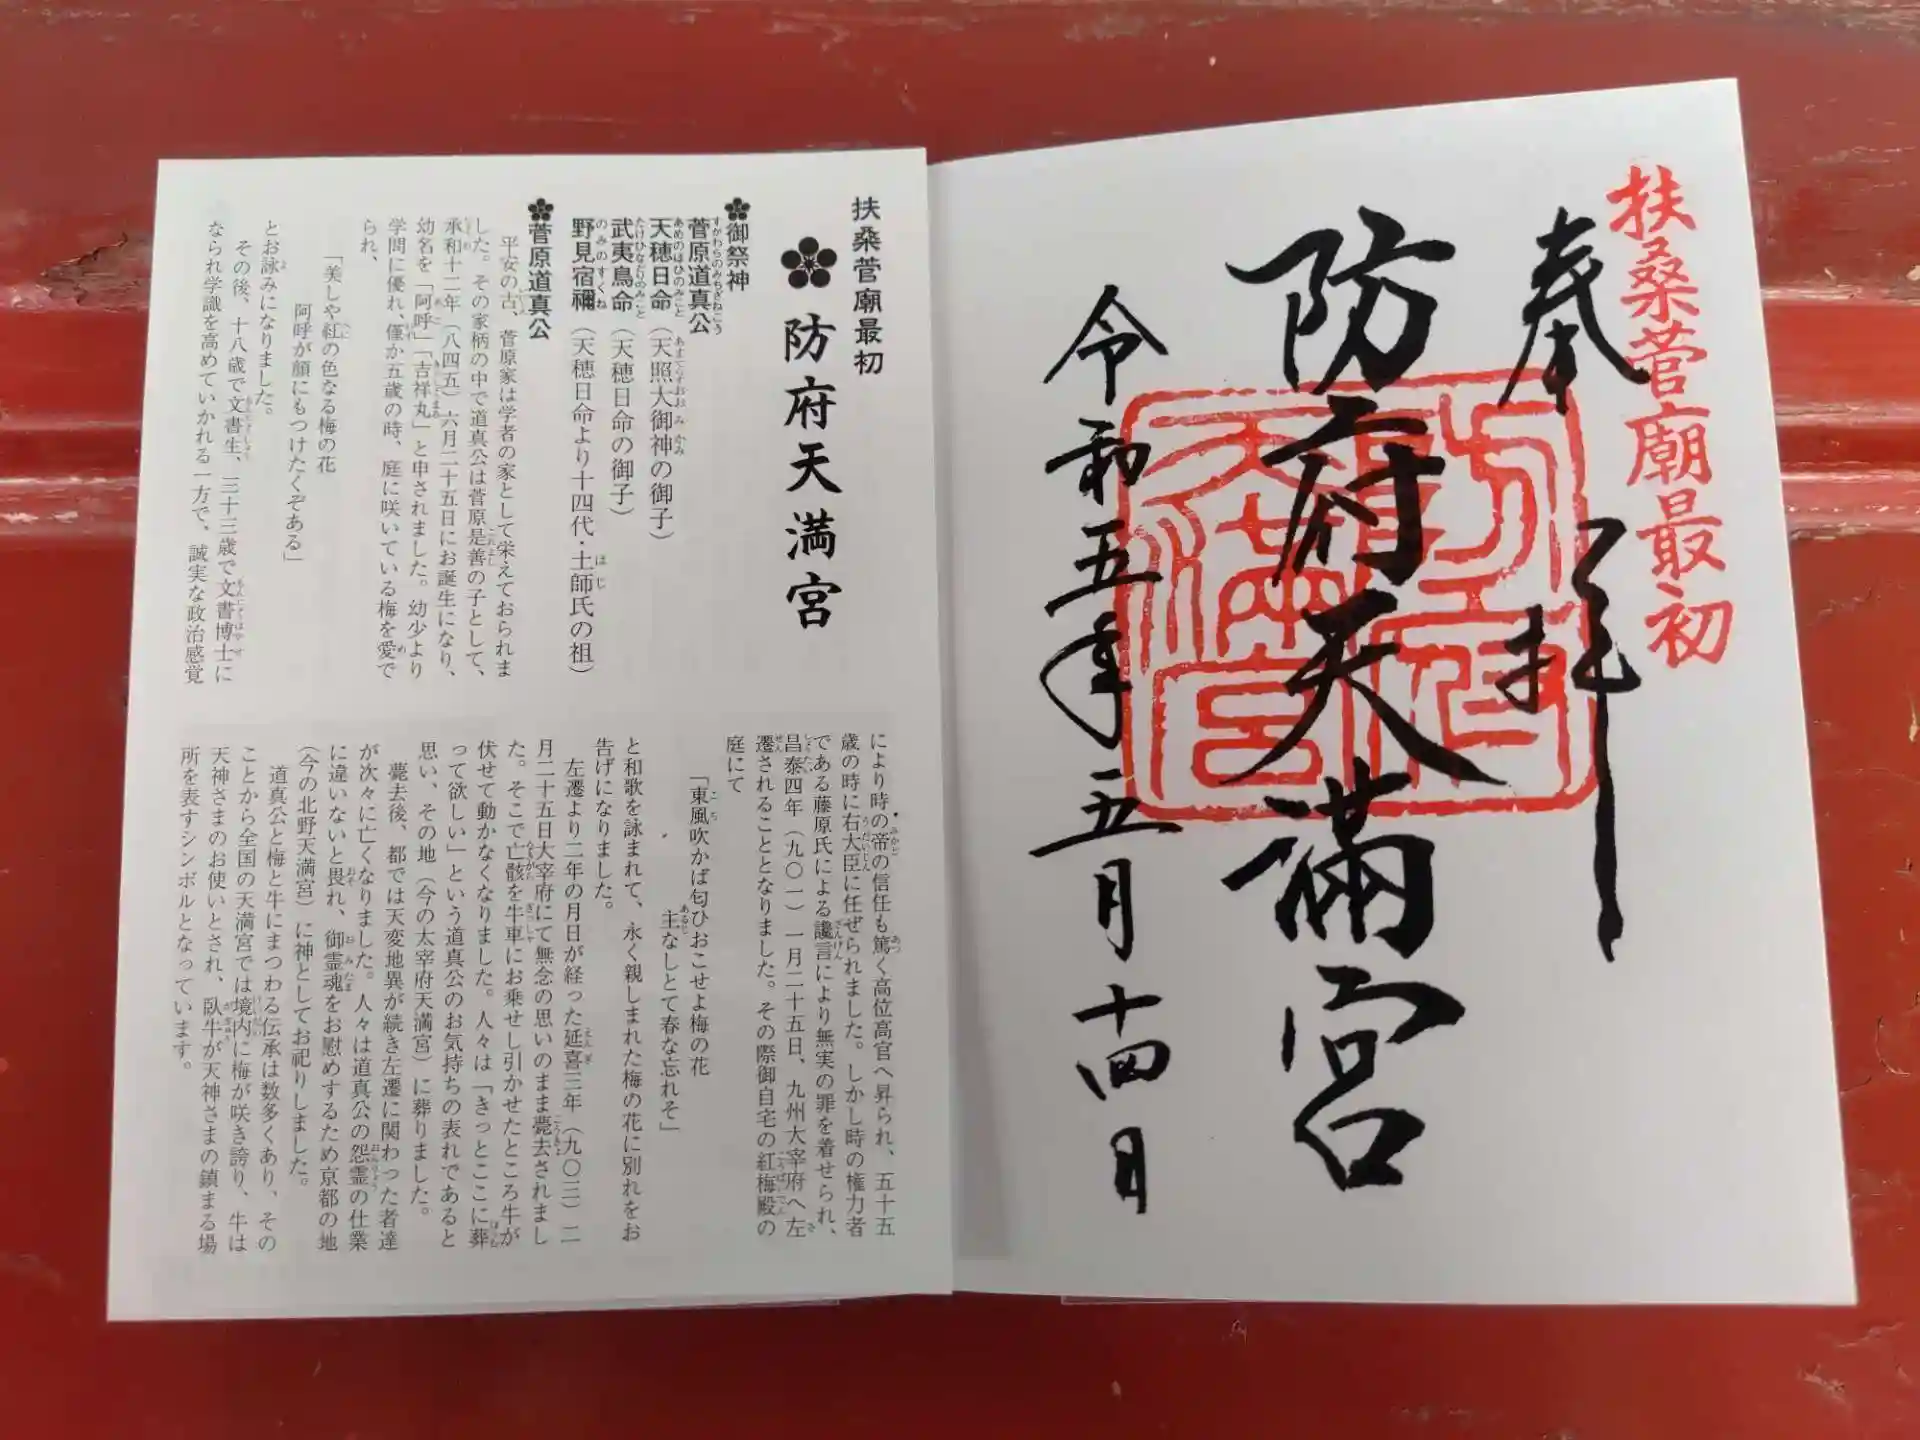 扶桑菅廟最初
奉拝
防府天満宮
令和五年五月十四日
防府天満宮
扶桑菅廟最初
防府天満宮
御祭神
菅原道真公
すがわらのみちざねこう
天穂日命(天照大御神の御子)
あめのほひのみこと
あまてらすおおみかみ
武夷鳥命(天穂日命の御子)
たけひなどりのみこと
野見宿禰(天穂日命より十四代・土師氏の祖)
のみのすくね
はじ
菅原道真公
平安の古、菅原家は学者の家として栄えておられま
した。その家柄の中で道真公は菅原是善の子として、
承和十二年(八四五)六月二十五日にお誕生になり、
幼名を「阿呼」「吉祥丸」と申されました。幼少より
学問に優れ、僅か五歳の時、庭に咲いている梅を愛で
られ、
「美しや紅の色なる梅の花
阿呼が顔にもつけたくぞある」
とお詠みになりました。
その後、十八歳で文書生、三十三歳で文書博士に
なられ学識を高めていかれる一方で、誠実な政治感覚
により時の帝の信任も篤く高位高官へ昇られ、五十五
歳の時に右大臣に任ぜられました。しかし時の権力者
である藤原氏による讒言により無実の罪を着せられ、
昌泰四年(九〇一)一月二十五日、九州大宰府へ左
遷されることとなりました。その際御自宅の紅梅殿の
庭にて
「東風吹かば匂ひおこせよ梅の花
主なしとて春な忘れそ」
と和歌を詠まれて、永く親しまれた梅の花に別れをお
告げになりました。
左遷より二年の月日が経った延喜三年(九〇三)二
月二十五日大宰府にて無念の思いのまま薨去されまし
た。そこで亡骸を牛車にお乗せし引かせたところ牛が
伏せて動かなくなりました。人々は「きっとここに葬
って欲しい」という道真公のお気持ちの表れであると
思い、その地(今の太宰府天満宮)に葬りました。
薨去後、都では天変地異が続き左遷に関わった者達
が次々に亡くなりました。人々は道真公の怨霊の仕業
に違いないと畏れ、御霊魂をお慰めするため京都の地
(今の北野天満宮)に神としてお祀りしました。
道真公と梅と牛にまつわる伝承は数多くあり、その
ことから全国の天満宮では境内に梅が咲き誇り、牛は
天神さまのお使いとされ、臥牛が天神さまの鎮まる場
所を表すシンボルとなっています。